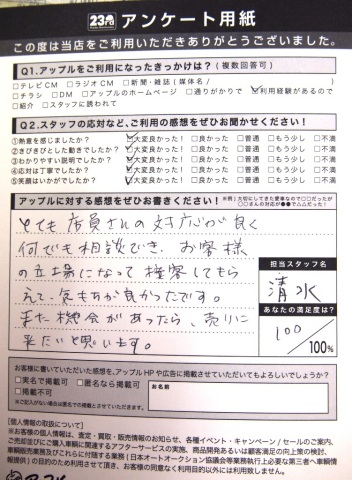 23 アンケート用紙
この度は当店をご利用いただきありがとうございました。
Q1.アップルをご利用になったきっかけは?(複数回答可)
□テレビCM □ラジオCM □新聞・雑誌(媒体名/ )
□チラシ □DM □アップルのホームページ □通りがかりで ☑利用経験があるので
□紹介 □スタッフに誘われて
Q2.スタッフの応対など、ご利用の感想をぜひお聞かせください!
①熱意を感じましたか? ☑大変良かった! □良かった □普通 □もう少し □不満
②きびきびとした動きでしたか? ☑大変良かった! □良かった □普通 □もう少し □不満
③わかりやすい説明でしたか? ☑大変良かった! □良かった □普通 □もう少し □不満
④応対は丁寧でしたか? ☑大変良かった! □良かった □普通 □もう少し □不満
⑤笑顔はいかがでしたか? ☑大変良かった! □良かった □普通 □もう少し □不満
アップルに対する感想をぜひお書きください!
※例)大切にしてきた愛車なので○○だったが
○○さんの対応が●●で△△だった!
とても店員さんの対応が良く
何でも相談でき、お客様
の立場になって接客してもら
えて、気もちが良かったです。
また機会があったら、売りに
来たいと思います。
担当スタッフ名
清水
あなたの満足度は?
100
100%
お客様に書いていただいた感想を、アップルHPや広告に掲載させていただいてもよろしいでしょうか?
□実名で掲載可 □匿名なら掲載可
□掲載不可
※ご記入がない場合は匿名での掲載とさせていただきます。
お名前
【個人情報の取扱について】
※お客様の個人情報は、査定・買取・販売情報のお知らせ、各種イベント・キャンペーン/セールのご案内、
ご売却並びにご購入車輌に関連するアフターサービスの実施、商品開発あるいは顧客満足の向上策の検討、
車輌販売業務及びこれらに付随する業務(日本オートオークション協議会等業務執行上必要な第三者へ車輌情
報提供)の目的のため利用させて頂き、お客様の同意なく利用目的以外には利用致しません。